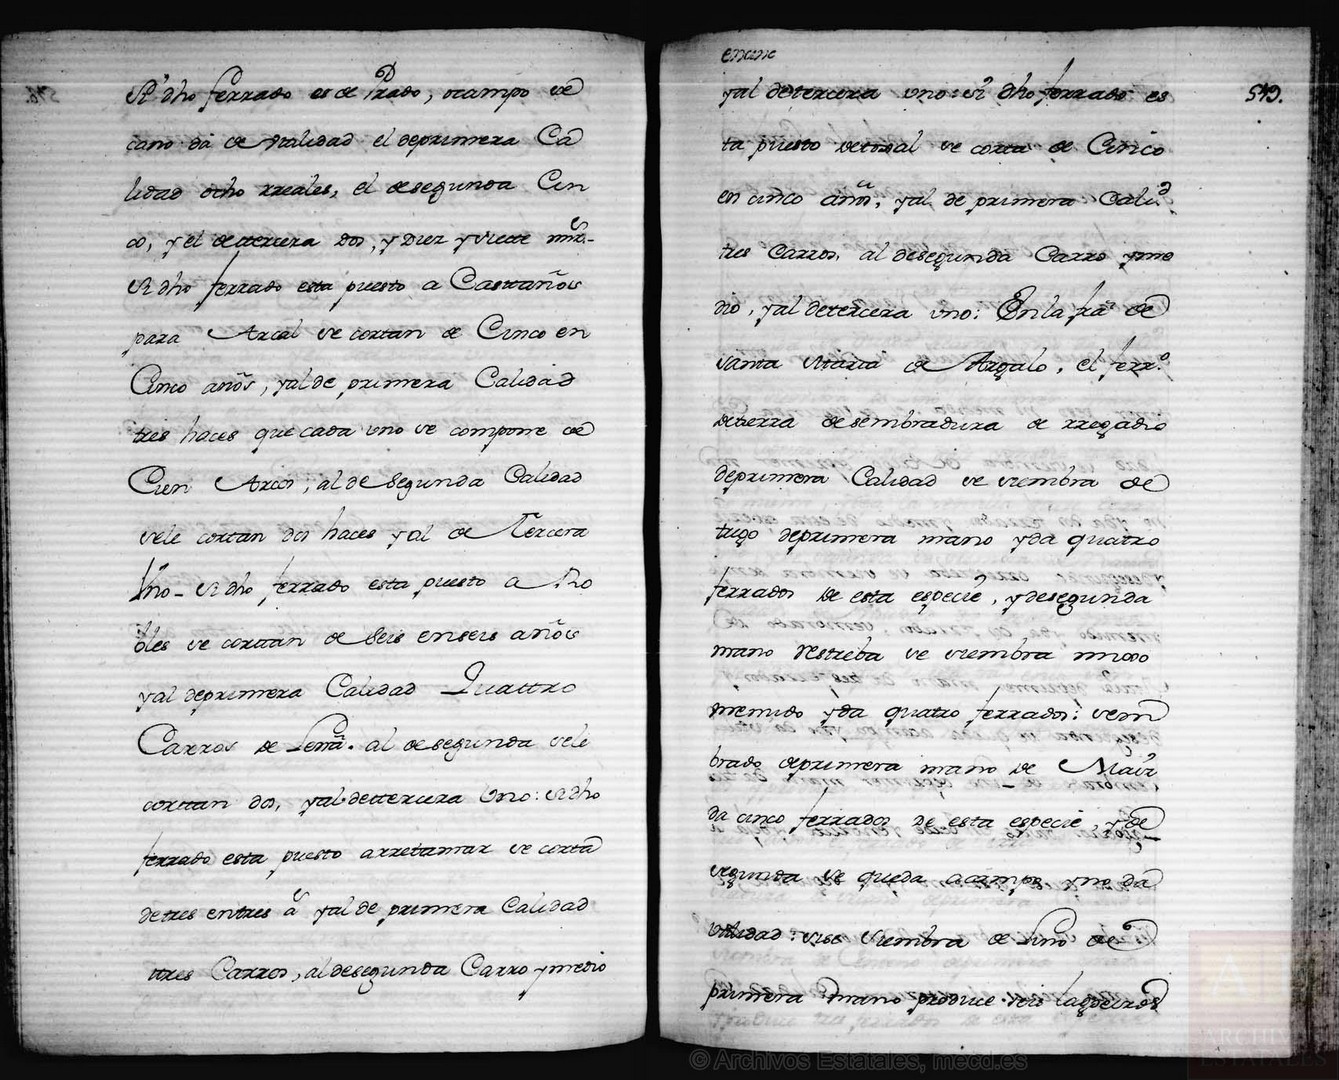 Si dho ferrado es de Prado, o campo se
cano da de utalidad el de primera Ca
lidad ocho rreales, el de segunda Cin
co, y el de tercera dos, y Diez y siete mrs.-
Si dho ferrado esta puesto a Castaños
para Arcos se cortan de Cinco en
Cinco años, y al de primera Calidad
tres haces que cada uno se compone de
Cien Arcos, al de Segunda Calidad
sele cortan dos haces y al de Tercera
Vno - Si dho ferrado esta puesto a Ro
bles se cortan de Seis en seis años
y al de primera Calidad Quattro
Carros de Leña. al de segunda sele
corttan dos, y al de ttercera Uno: Si dho
ferrado esta puesto a rretamar se corta
de tres en tres a y al de primera Calidad
ttres Carros, al de segunda Carro y medio
y al de tercera uno: si dho ferrado es
ta puesto de tojal se corta de Cinco
en cinco años, y al de primera Calid
tres Carros, al de segunda Carro y me
dio, y al de tercera uno: En la fra de
Santa Maria de Argalo, el ferro
de tierra de sembradura de rregadio
de primera Calidad se siembra de
trigo de primera mano y da quatro
ferrados de esta especie, y de segunda
mano de streba se siembra mixo
menudo y da quatro ferrados: sem
brado de primera mano de Maiz
da cinco ferrados de esta especie, y de
segunda se queda a campo y no da
utilidad: si se siembra de Lino de
primera mano produce seis
543.
© Archivos Estatales, mecd.es
ARCHIVOS
ESTATALES